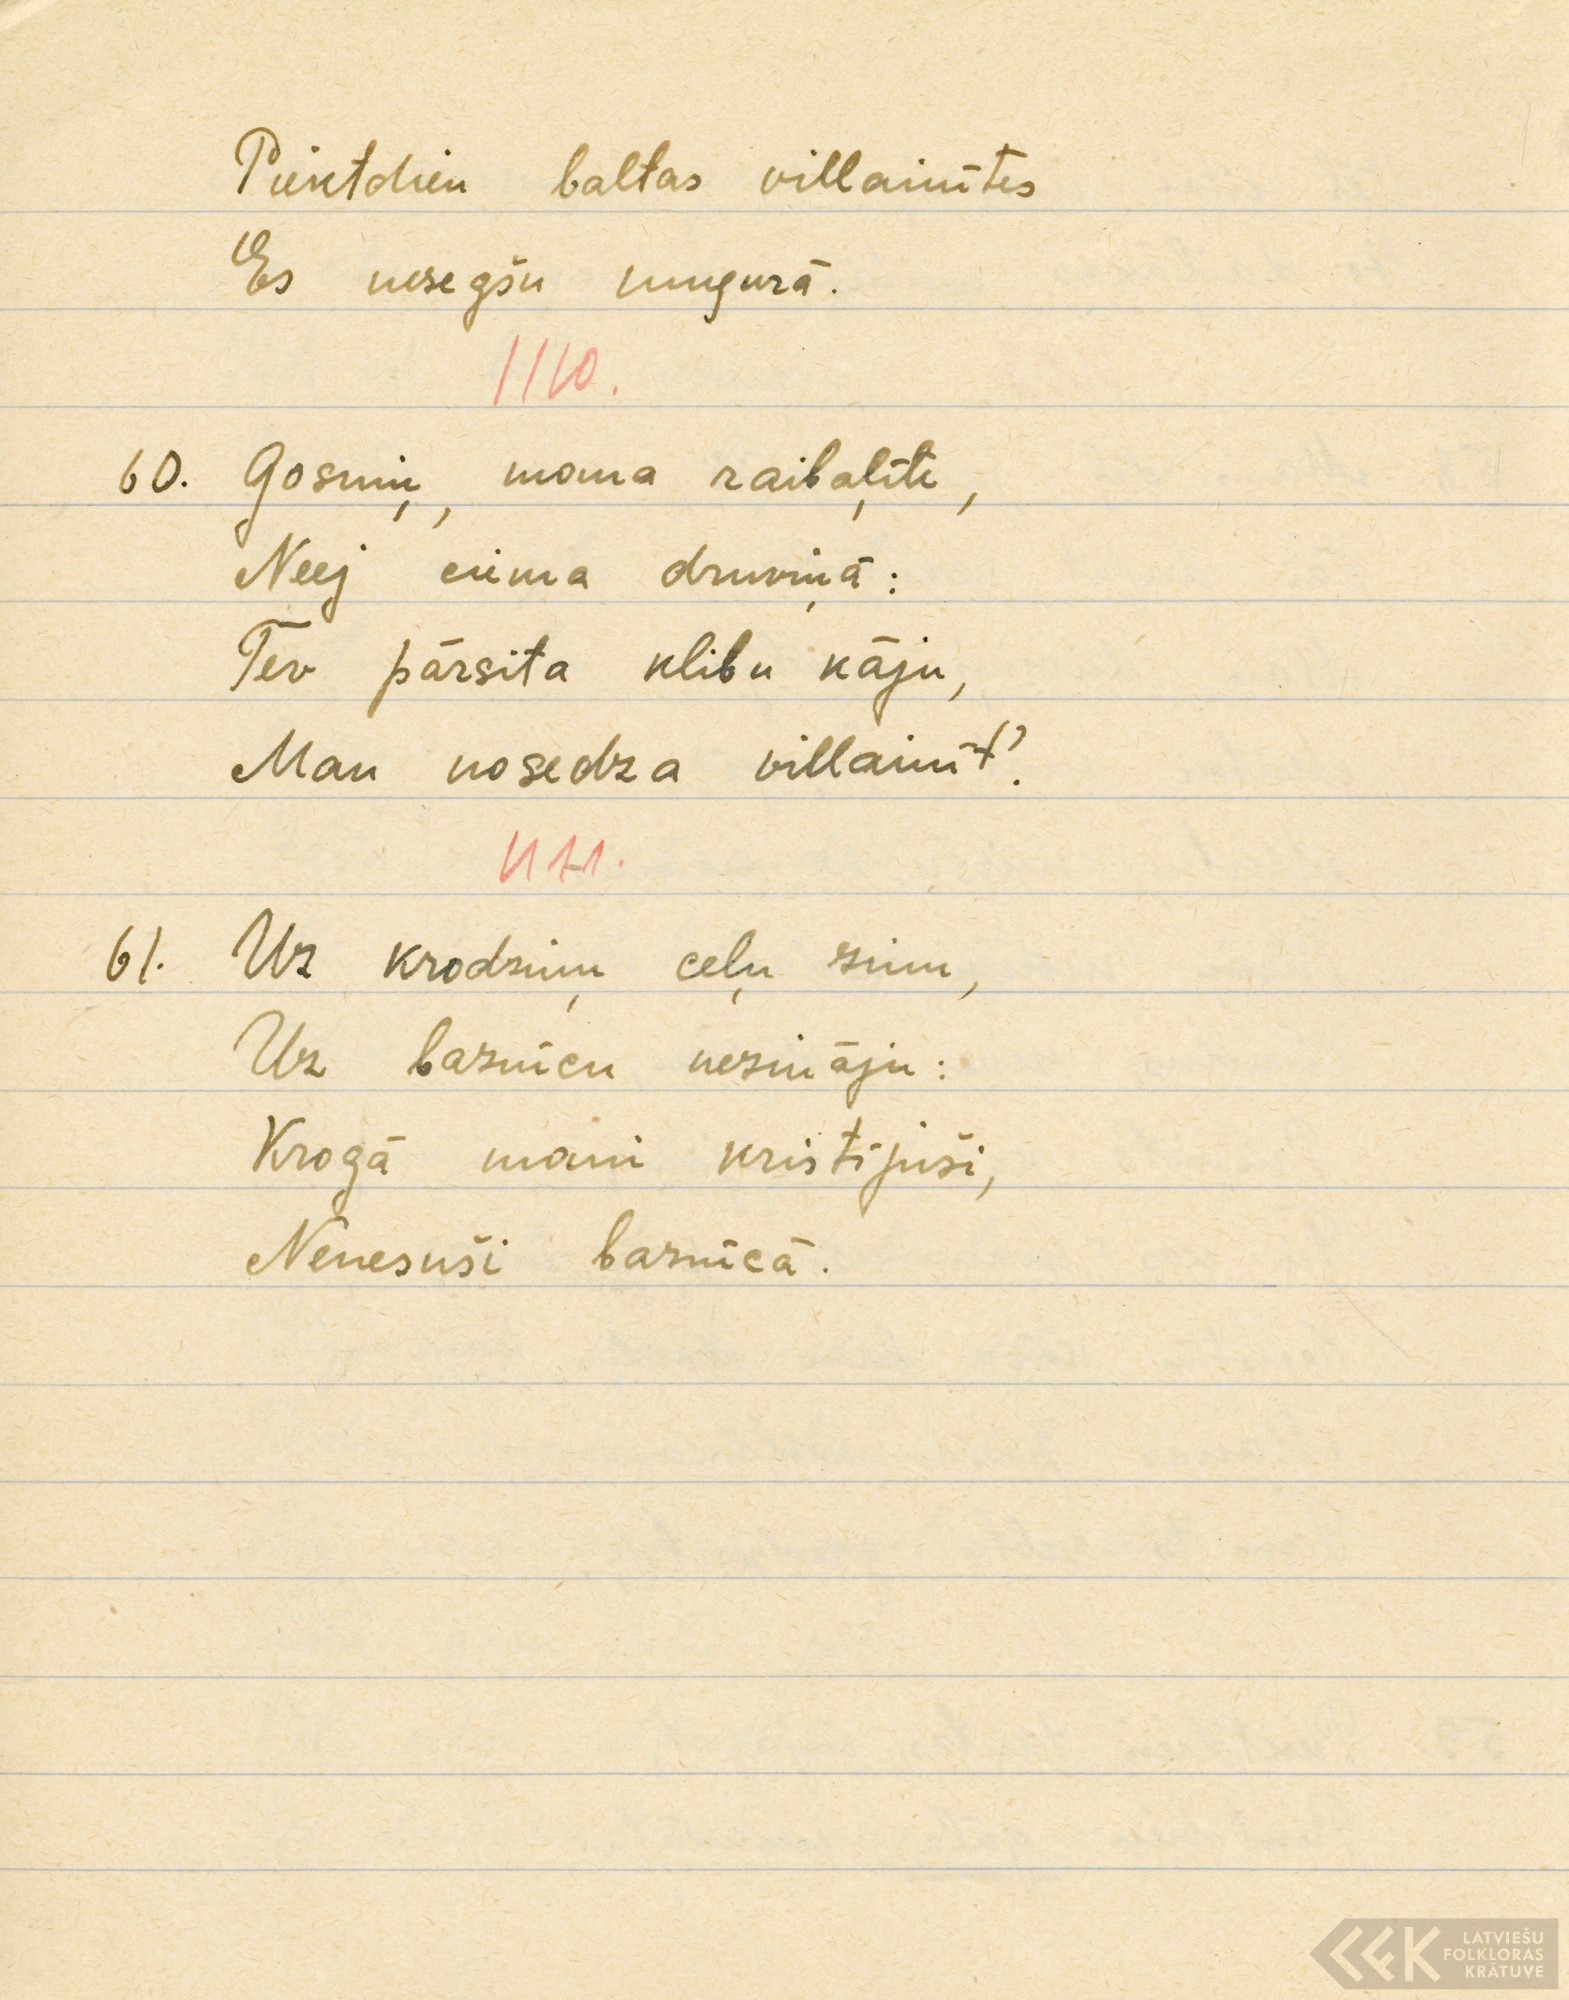 Piektdien baltas villainītes
Es nesegšu mugurā.
1110.
60. Gosniņ, mana raibaļīte,
Neej ciema druviņā:
Tev pārsita klibu kāju,
Man nosedza villainīt'.
1111.
61. Uz krodziņu ceļu zinu,
Uz baznīcu nezināju:
Krogā mani kristījuši,
Nenesuši baznīcā.
LATVIEŠU
FOLKLORAS
KRĀTUVE